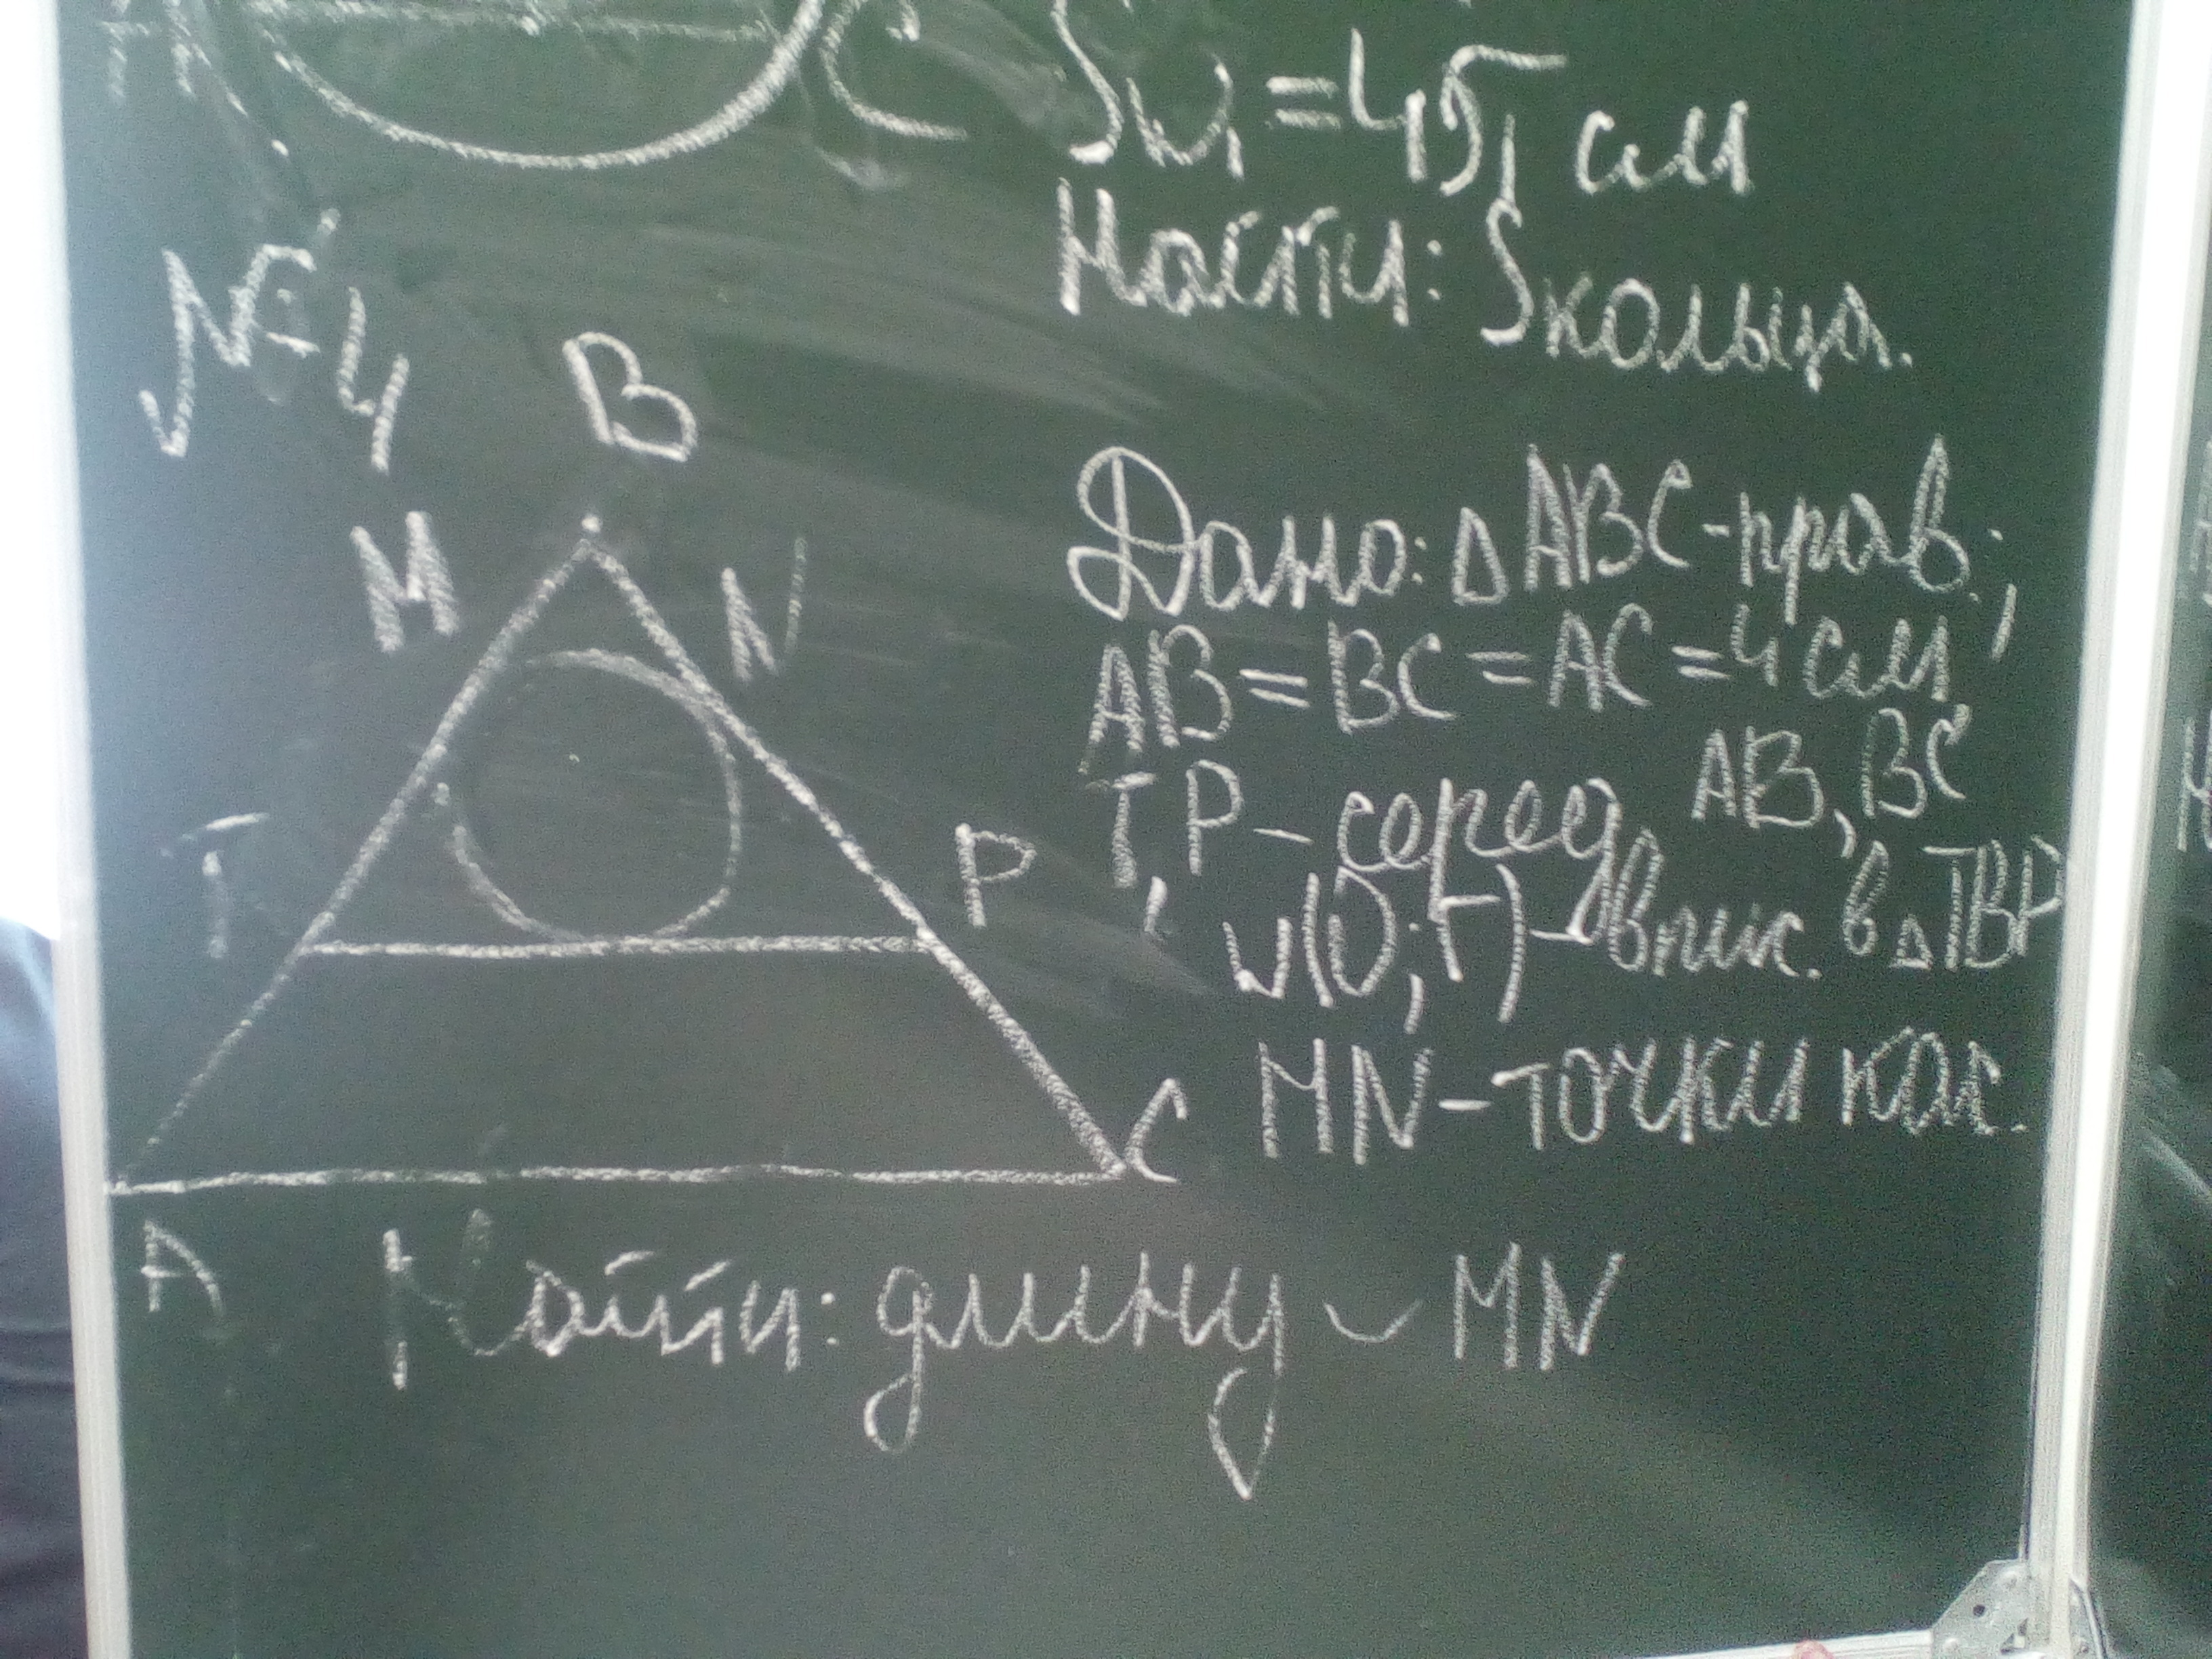 C
Sω₁ = 45, см
Найти: Sкольца.
№4
B
M
N
T
P
A
C
Дано: △ABC-прав.;
AB = BC = AC = 4 см
T, P - серед. AB, BC
ω(O; r) - впис. в △TBP
MN - точки кас.
Найти: длину ◡ MN